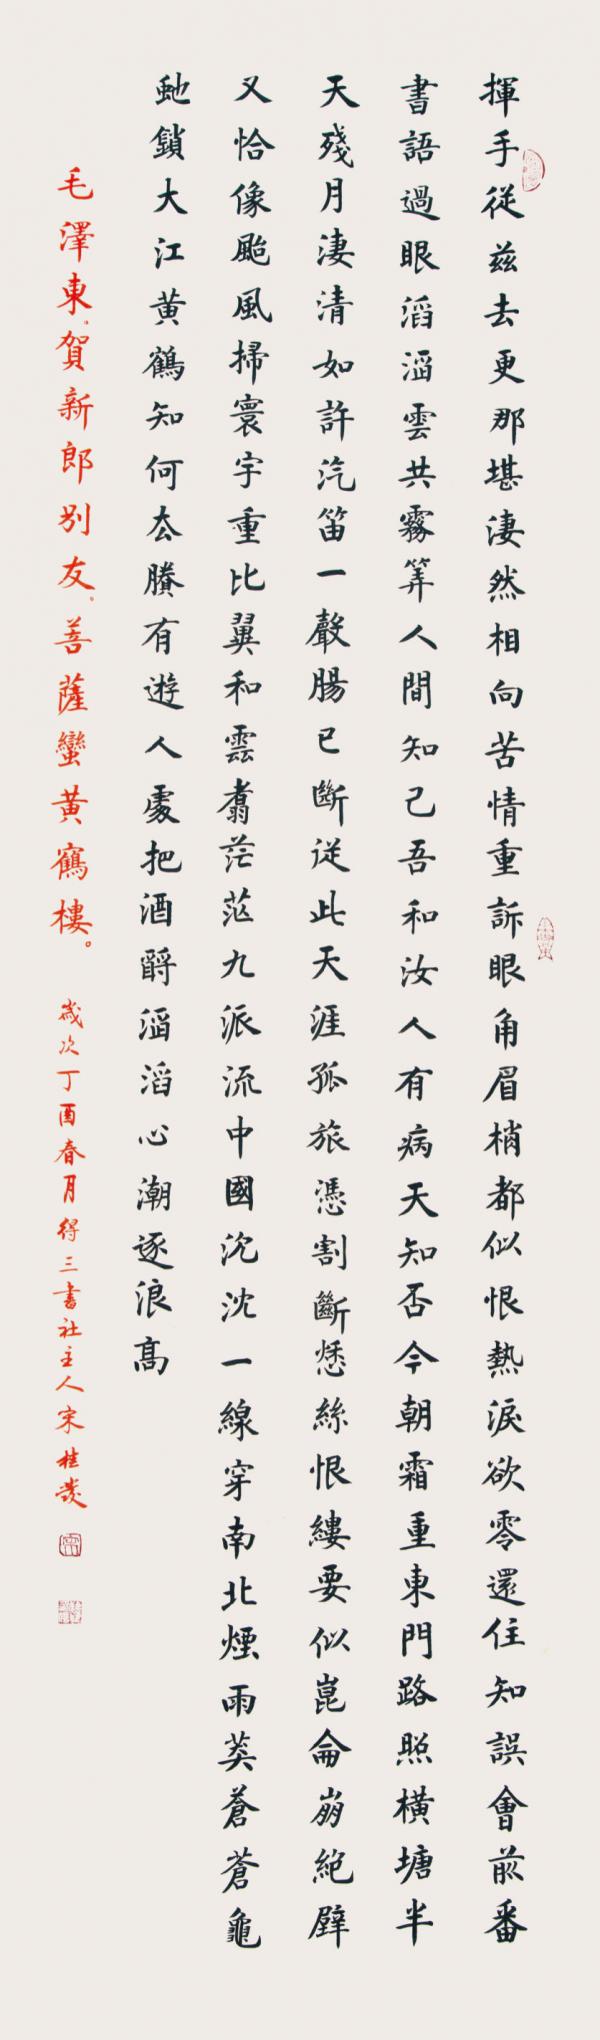 揮手從茲去更那堪淒然相向苦情重訴眼角眉梢都似恨熱淚欲零還住知誤會前番
書語過眼滔滔雲共霧筭人間知己吾和汝人有病天知否今朝霜重東門路照橫塘半
天殘月淒清如許汽笛一聲腸已斷從此天涯孤旅憑割斷愁絲恨縷要似崑侖崩絕壁
又恰像颱風掃寰宇重比翼和雲翥茫茫九派流中國沉沈一線穿南北煙雨莽蒼蒼龜
虵鎖大江黃鶴知何厺賸有遊人處把酒酹滔滔心潮逐浪高
毛澤東。賀新郎別友。菩薩蠻黃鶴樓。
歲次丁酉春月得三書社主人宋桂發